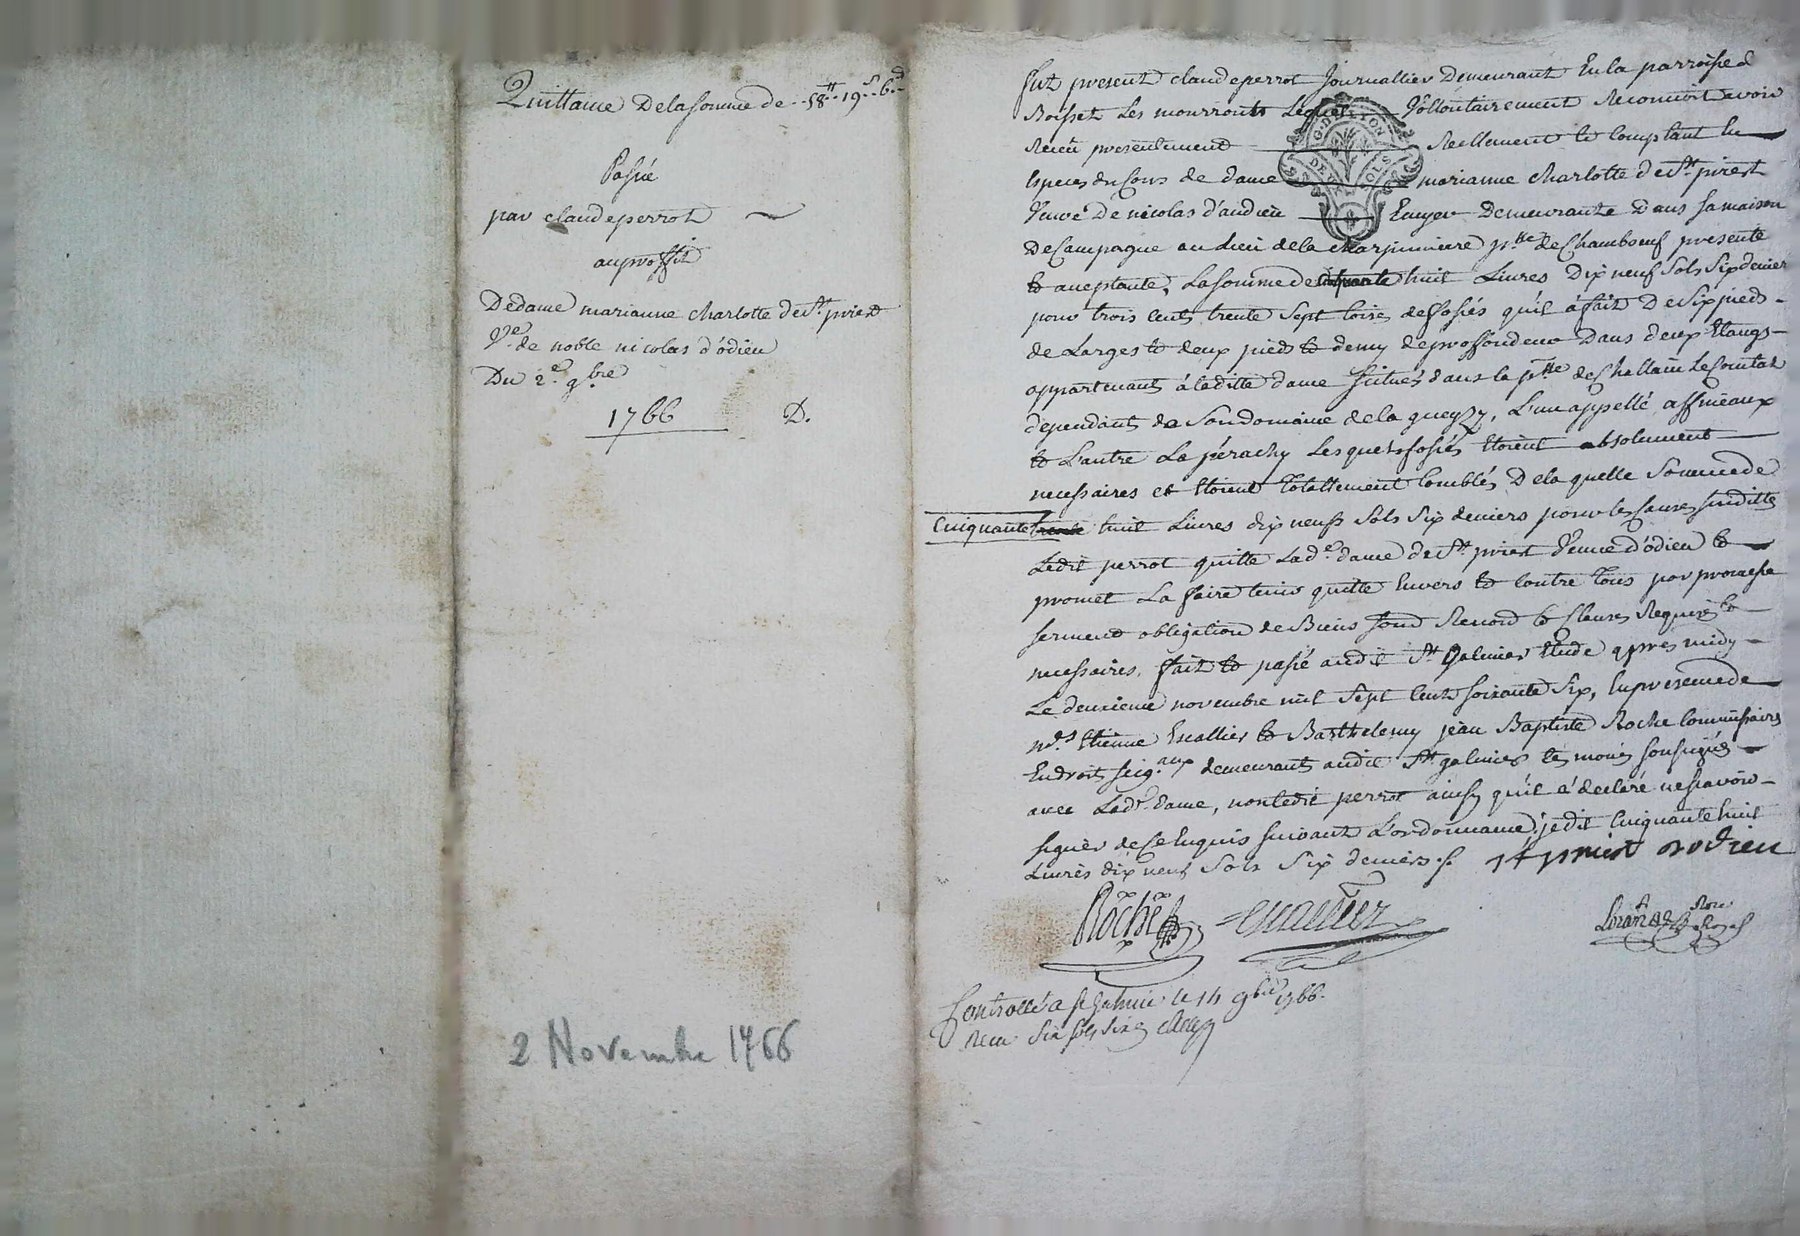 Quittance Delasomme de .. 58.tt 19.s 6.d
Passée
par claudeperrot
auproffit
Dedame marianne charlotte de St. priest
Ve. de noble nicolas d'odieu
Du 2.e 9.bre
1766 D.
2 Novembre 1766
fut present claudeperrot Journallier demeurant En la parroisse d
Boisset Les montronts Lequel Vollontairement Reconnoit avoir
Receu presentement Reellement et Comptant En
Especes du Cours de dame marianne charlotte de St. priest
Veuve De nicolas d'audieu Ecuyer Demeurante Dans Samaison
DeCampagne au Lieu de la charpinniere p.sse deChambœuf presente
et aceptante, Lasomme de huit Livres Dix neuf Sols Six denier
pour trois Cents trente Sept toises de fossés qu'il à fait De Six pieds
de Larges et deux pieds et demy deproffondeur Dans deux Etangs
appartenants à laditte dame Situés dans la p.sse de Challain LeComtal
dependants de Sondomaine de la gueyzy, L'un appellé affineaux
et L'autre La pérachy Lesquels fossés Etoient absolument
necessaires et Etoient Totallement Comblés Dela quelle Sommede
Cinquante huit Livres dix neuf Sols Six deniers pour les causes Susdittes
Ledit perrot quitte Lad.e dame de St. priest Veuve d'odieu et
promet La faire tenir quitte Envers et Contre Tous par promesse
serment obligation de Biens fond Renond et Clauses Requises et
necessaires, fait et passé audit St. galmier Etude après midy
Le deuxieme novembre mil Sept Cents soixante Six, En presencede
Mrs. Etienne Escallier et Barthelemy jean Baptiste Roche Commissaires
Endroits seig.aux demeurants audit St. galmier temoins soussignés
avec Lad.e dame, non ledit perrot ainsy qu'il a declaré nescavoir
signer de Ce Enquis suivant L'ordonnance, je dit Cinquante huit
Livres dix neuf Sols Six deniers ./. St priest dodieu
Roche Escallier
Controllé a St Galmier le 14 9bre 1766.
Recu Six sols Six d
G. DE LYON
DEUX SOLS